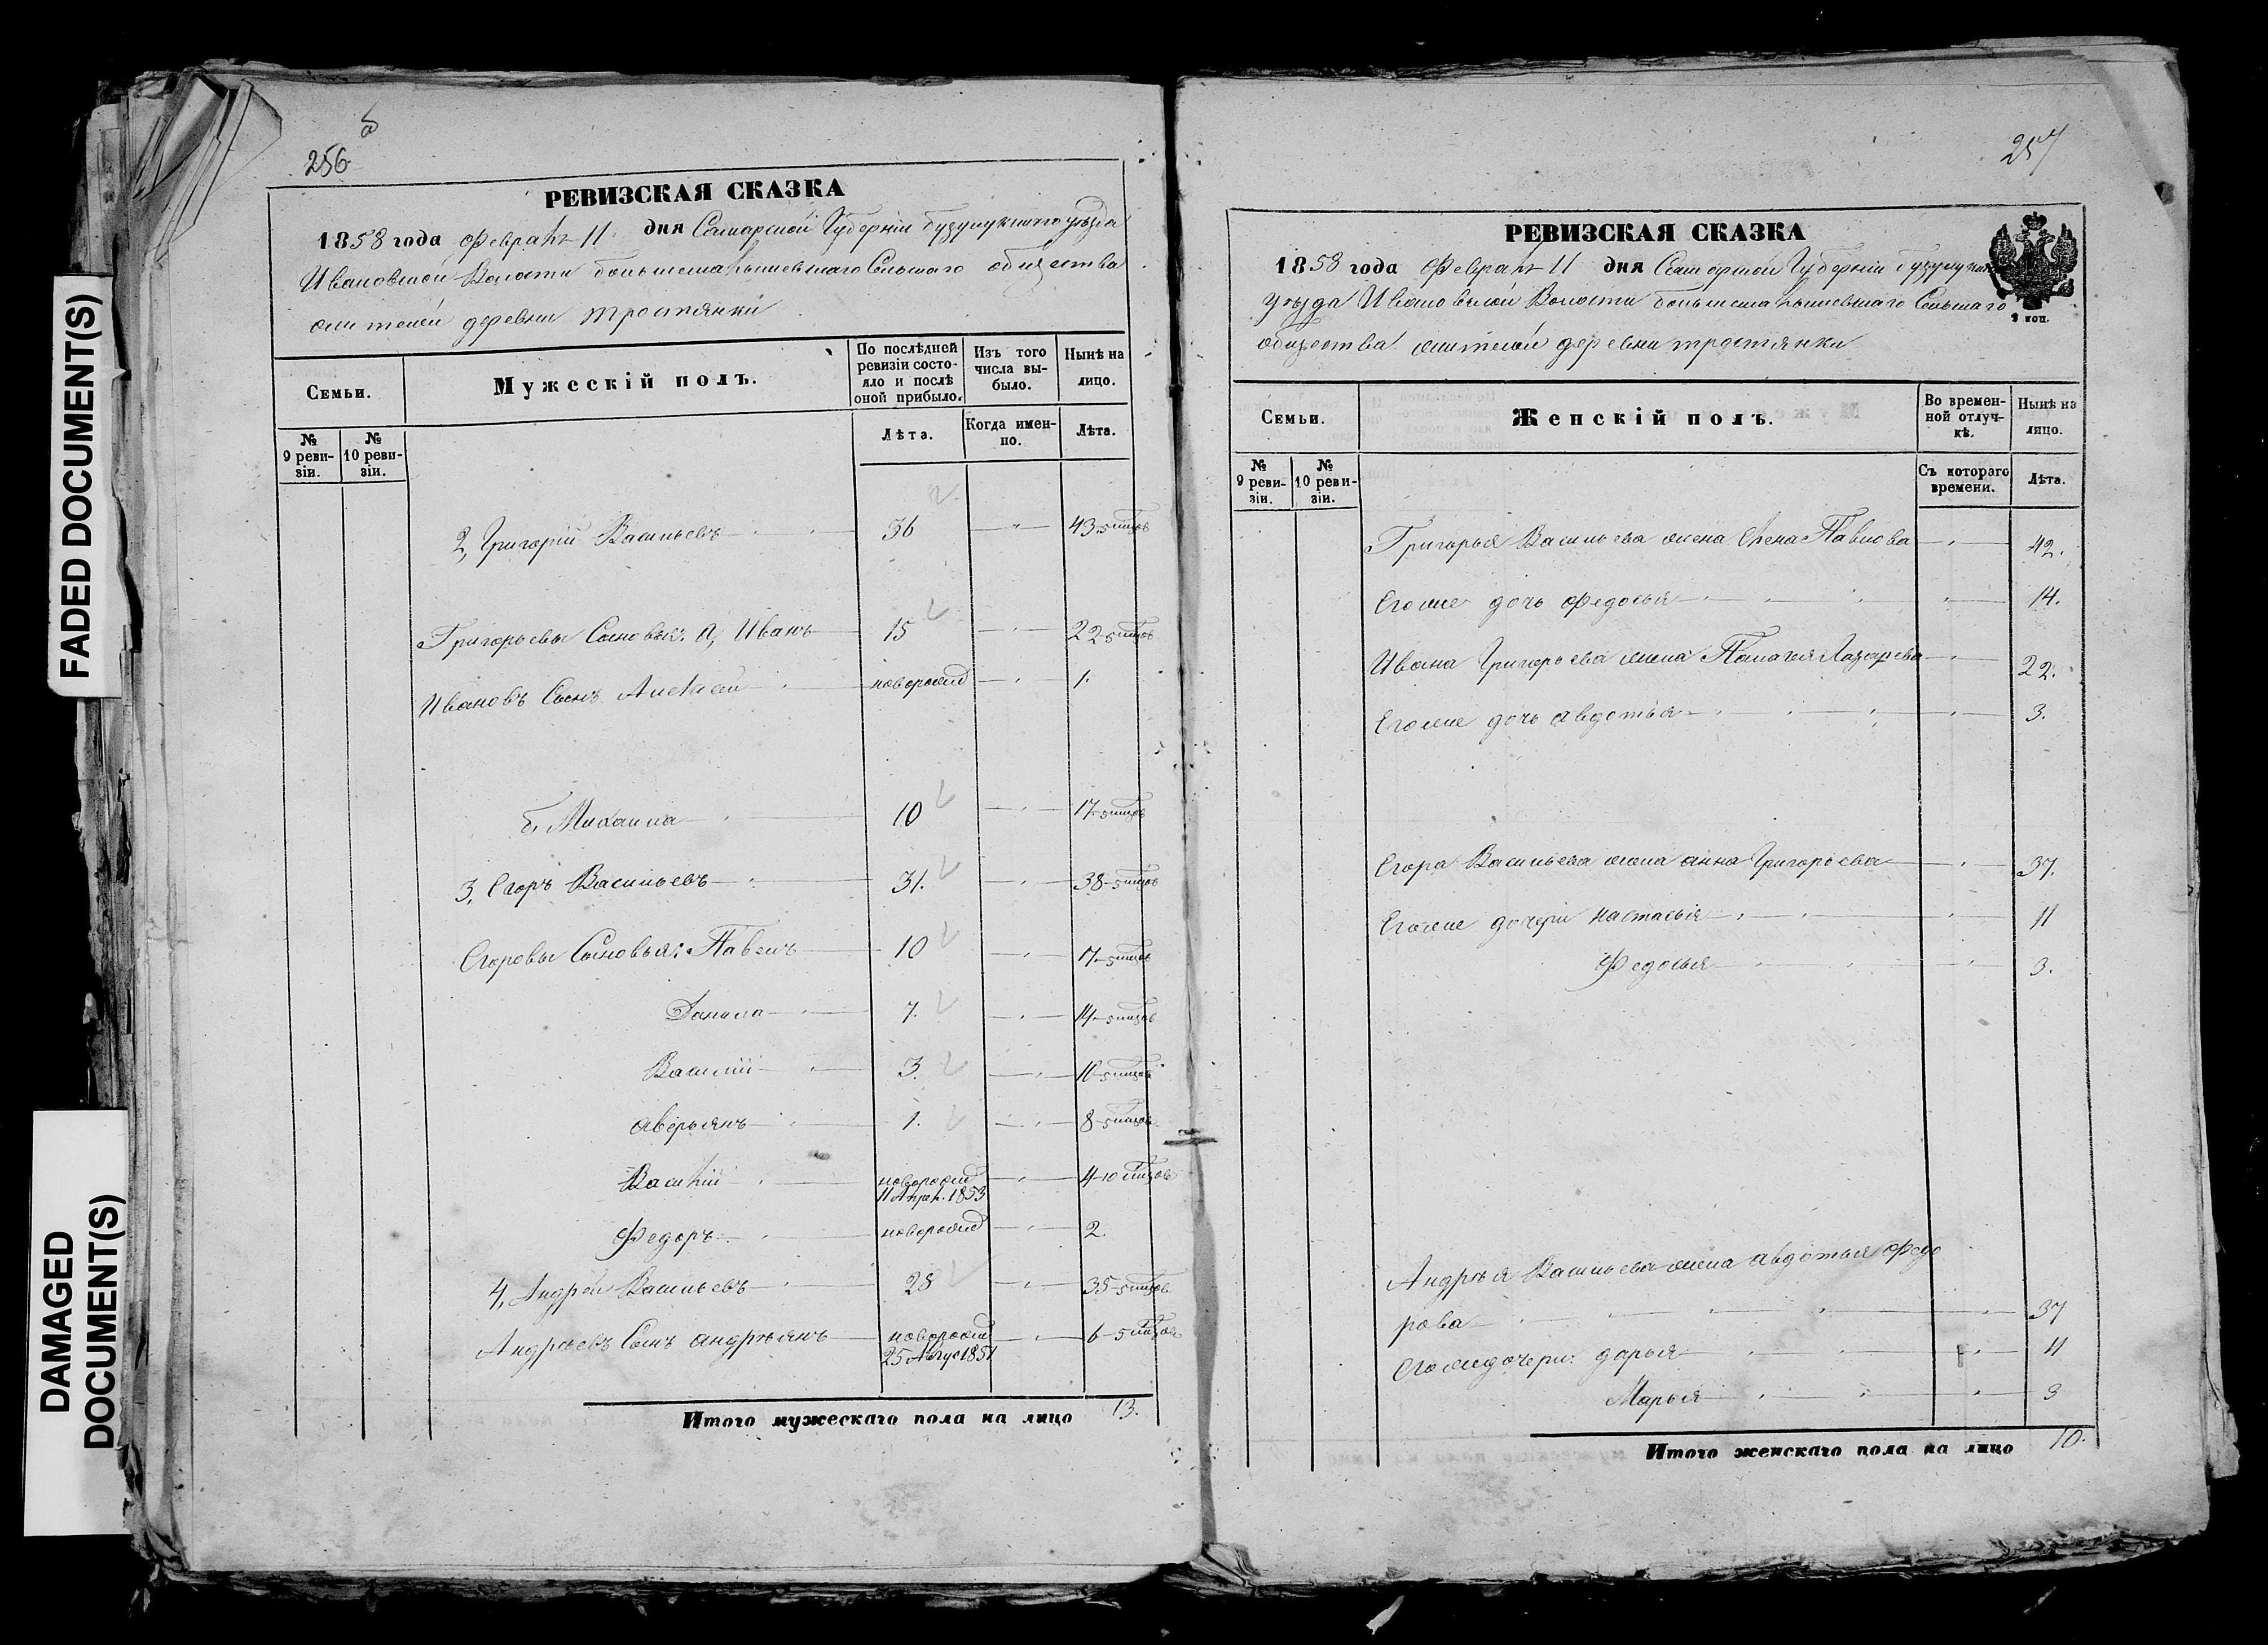 FADED DOCUMENT(S)
DAMAGED
DOCUMENT(S)
256
РЕВИЗСКАЯ СКАЗКА
1858 года февраля 11 дня Самарской Губерніи бузулукскаго уѣзда
Ивановской Волости общества
жителей деревни тростянки
Семьи.
Мужескій полъ.
По послѣдней
ревизіи состо-
яло и послѣ
оной прибыло.
Изъ того
числа вы-
было.
Нынѣ на
лицо.
№
9 реви-
зіи.
№
10 реви-
зіи.
Лѣта.
Когда имен-
но.
Лѣта.
2, Григорій Васильевъ 36 43
Григорьевы Сыновья: а, Иванъ 15 22
Ивановъ Сынъ Алексей новорожд 1.
б, Михаила 10 17
3, Егоръ Васильевъ 31. 38
Егоровы Сыновья: Павелъ 10 17
Данила 7. 14
Василій 3. 10
аверьянъ 1. 8
Василій новорожд 4
11 Апрел. 1853
Федоръ новорожд 2.
4, Андрей Васильевъ 28 35
Андреевъ Сынъ андреянъ новорожд 6
25 Авгус 1851
Итого мужескаго пола на лицо 13.
257
РЕВИЗСКАЯ СКАЗКА
1858 года Февраля 11 дня Самарской Губерніи бузулукска
уѣзда Ивановской Волости
общества жителей деревни тростянки
2 коп.
Семьи.
Женскій полъ.
Во времен-
ной отлуч-
кѣ.
Нынѣ на
лицо.
№
9 реви-
зіи.
№
10 реви-
зіи.
Съ котораго
времени.
Лѣта.
Григорья Васильева жена Елена Павлова 42.
Егоже дочь федосья 14.
Ивана Григорьева жена Палагея Лазарева 22.
Егоже дочь авдотья 3.
Егора Васильева жена анна Григорьева 37.
Егоже дочери настасья 11
Федосья 3.
Андрея Васильева жена авдотья федо
рова 37
Егоже дочери: дарья 11
Марья 3
Итого женскаго пола на лицо 10.